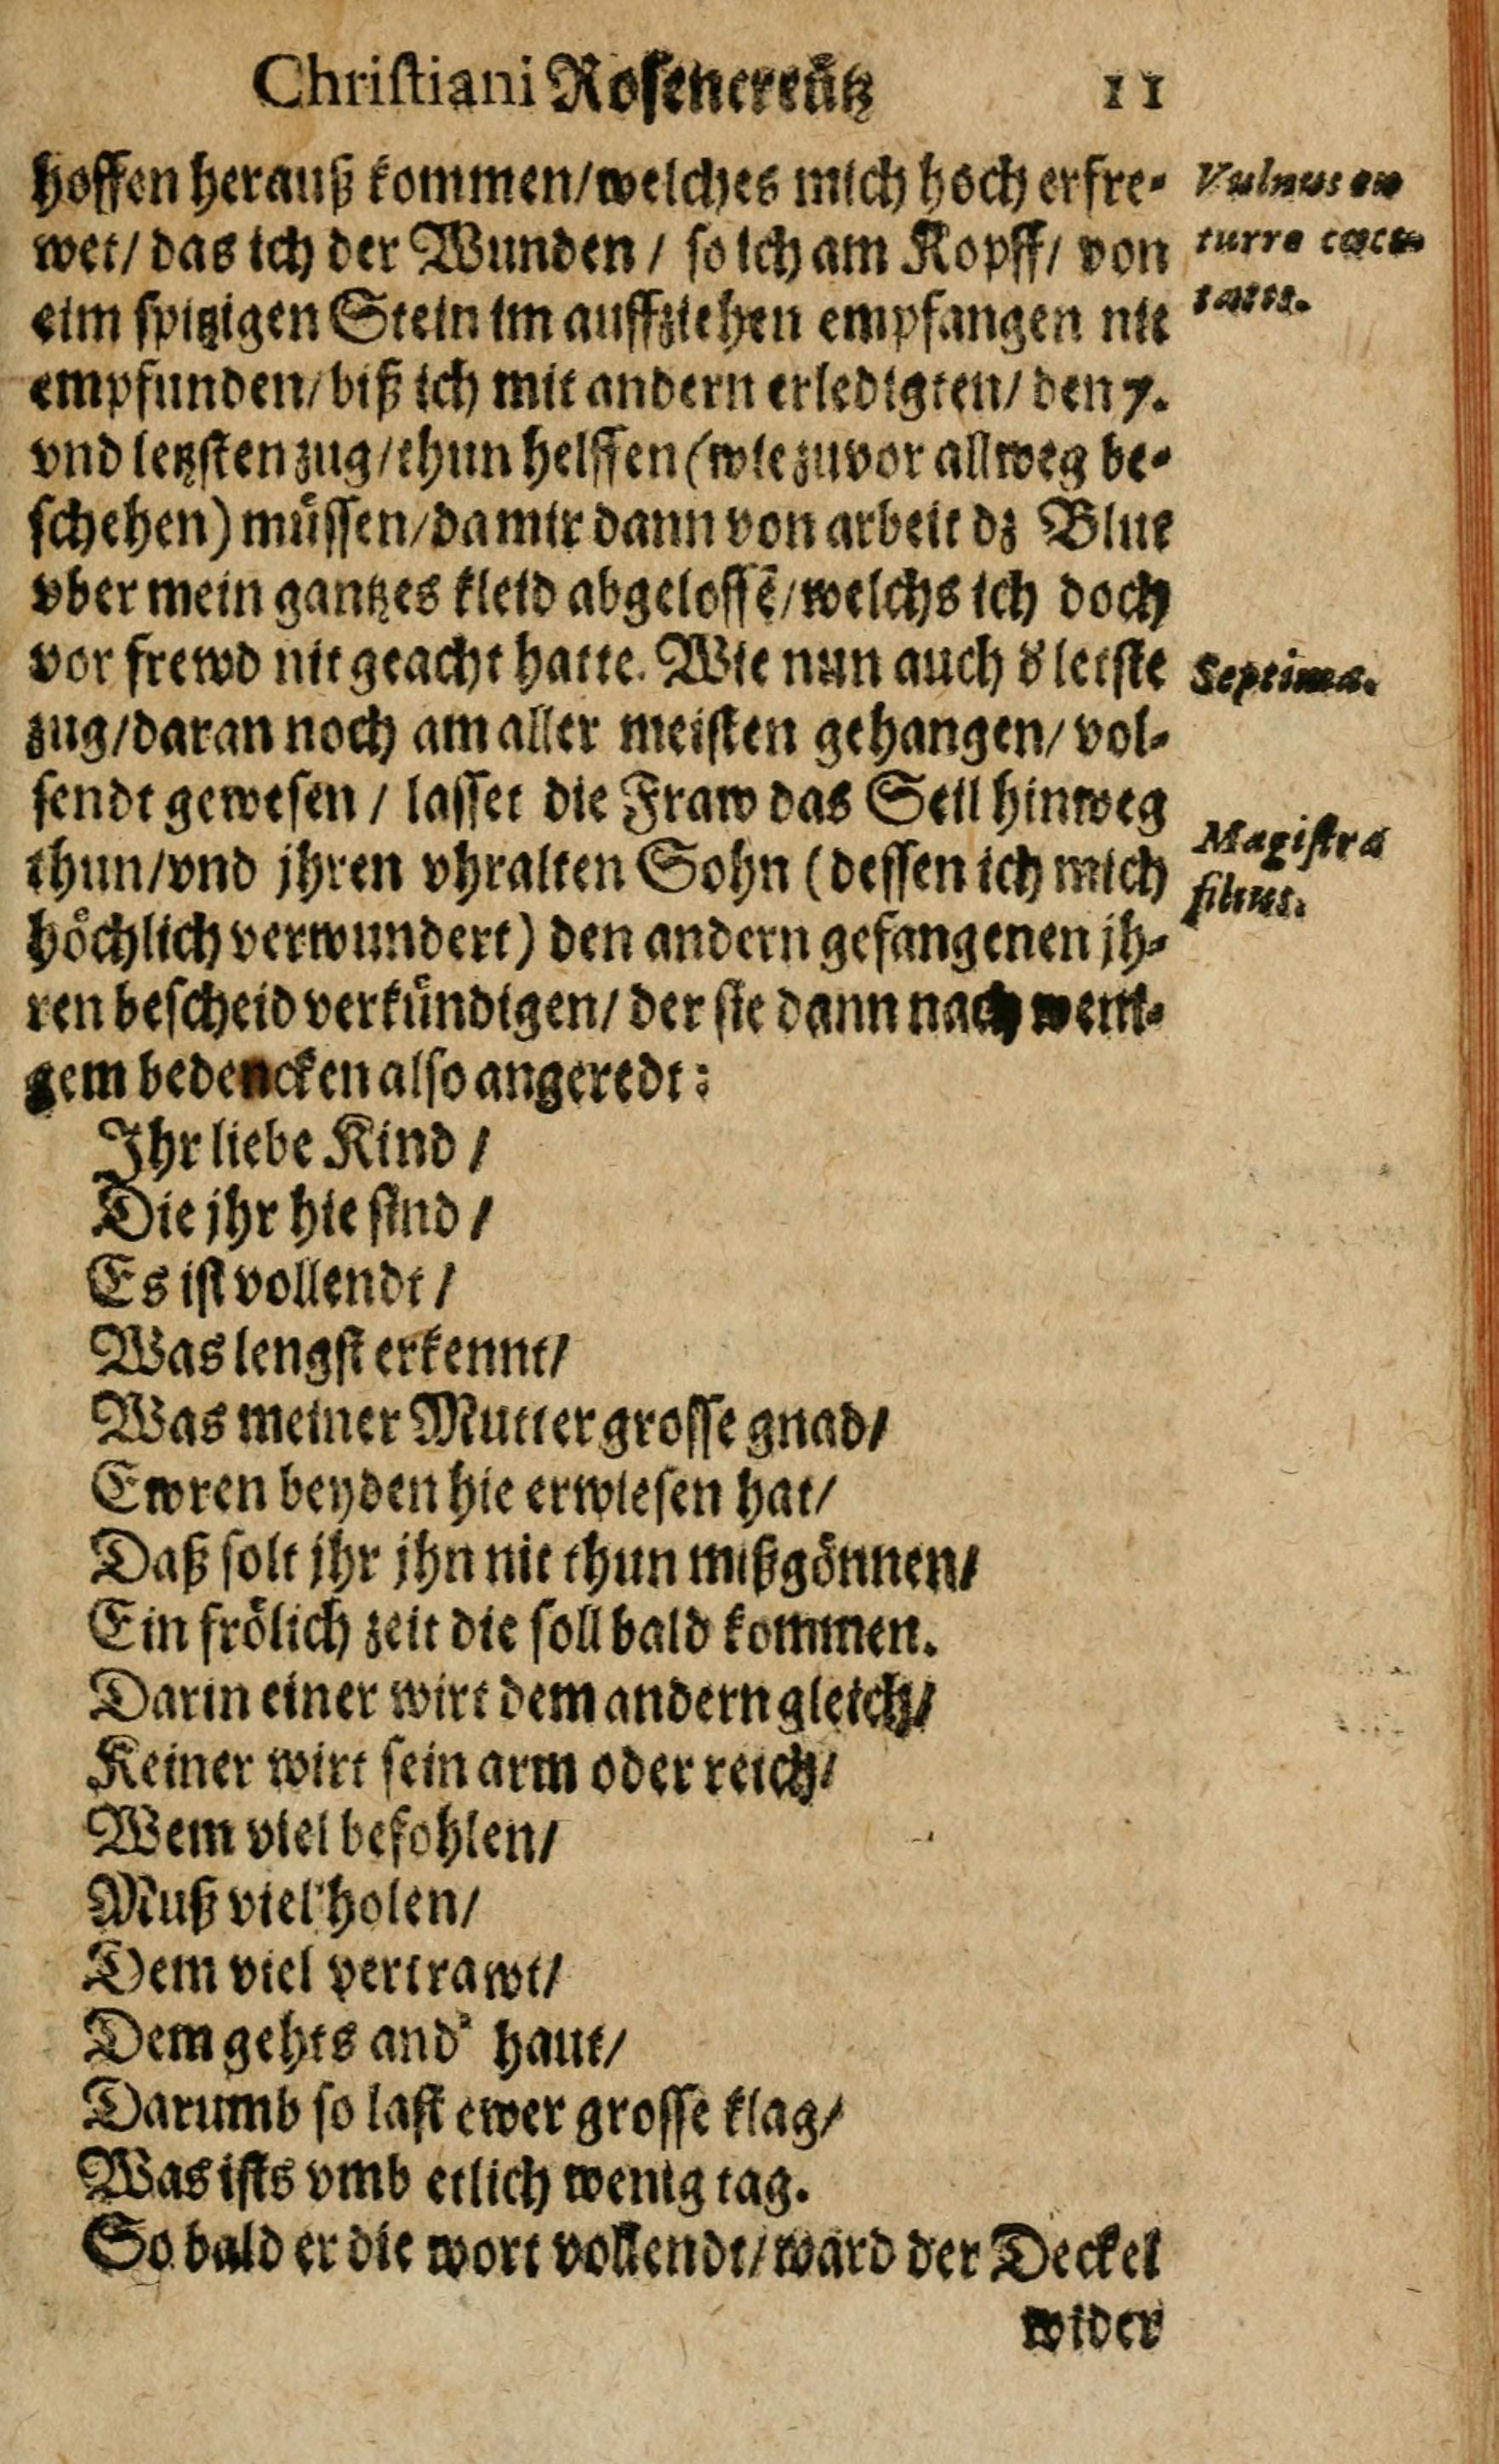 Christiani Rosencreütz 11
hoffen herauß kommen/welches mich hoch erfre-
wet/ das ich der Wunden / so ich am Kopff/ von
eim spitzigen Stein im auffziehen empfangen nie
empfunden/biß ich mit andern erledigten/ den 7.
vnd letzsten zug/thun helffen (wie zuvor allweg be-
schehen) müssen/da mir dann von arbeit dz Blut
vber mein gantzes kleid abgeloffē/welchs ich doch
vor frewd nit geacht hatte. Wie nun auch d̕ letste
zug/daran noch am aller meisten gehangen/ vol-
sendt gewesen / lasset die Fraw das Seil hinweg
thun/vnd jhren vhralten Sohn (dessen ich mich
höchlich verwundert) den andern gefangenen jh-
ren bescheid verkündigen/ der sie dann nach weni-
gem bedencken also angeredt:
Jhr liebe Kind /
Die jhr hie sind /
Es ist vollendt /
Was lengst erkennt/
Was meiner Mutter grosse gnad/
Ewren beyden hie erwiesen hat/
Daß solt jhr jhn nit thun mißgönnen/
Ein frölich zeit die soll bald kommen.
Darin einer wirt dem andern gleich/
Keiner wirt sein arm oder reich/
Wem viel befohlen/
Muß viel holen/
Dem viel vertrawt/
Dem gehts and' haut/
Darumb so last ewer grosse klag/
Was ists vmb etlich wenig tag.
So bald er die wort vollendt/ward der Deckel
wider
Vulnus ex
turre cæci-
tatis.
Septima.
Magistra
filius.